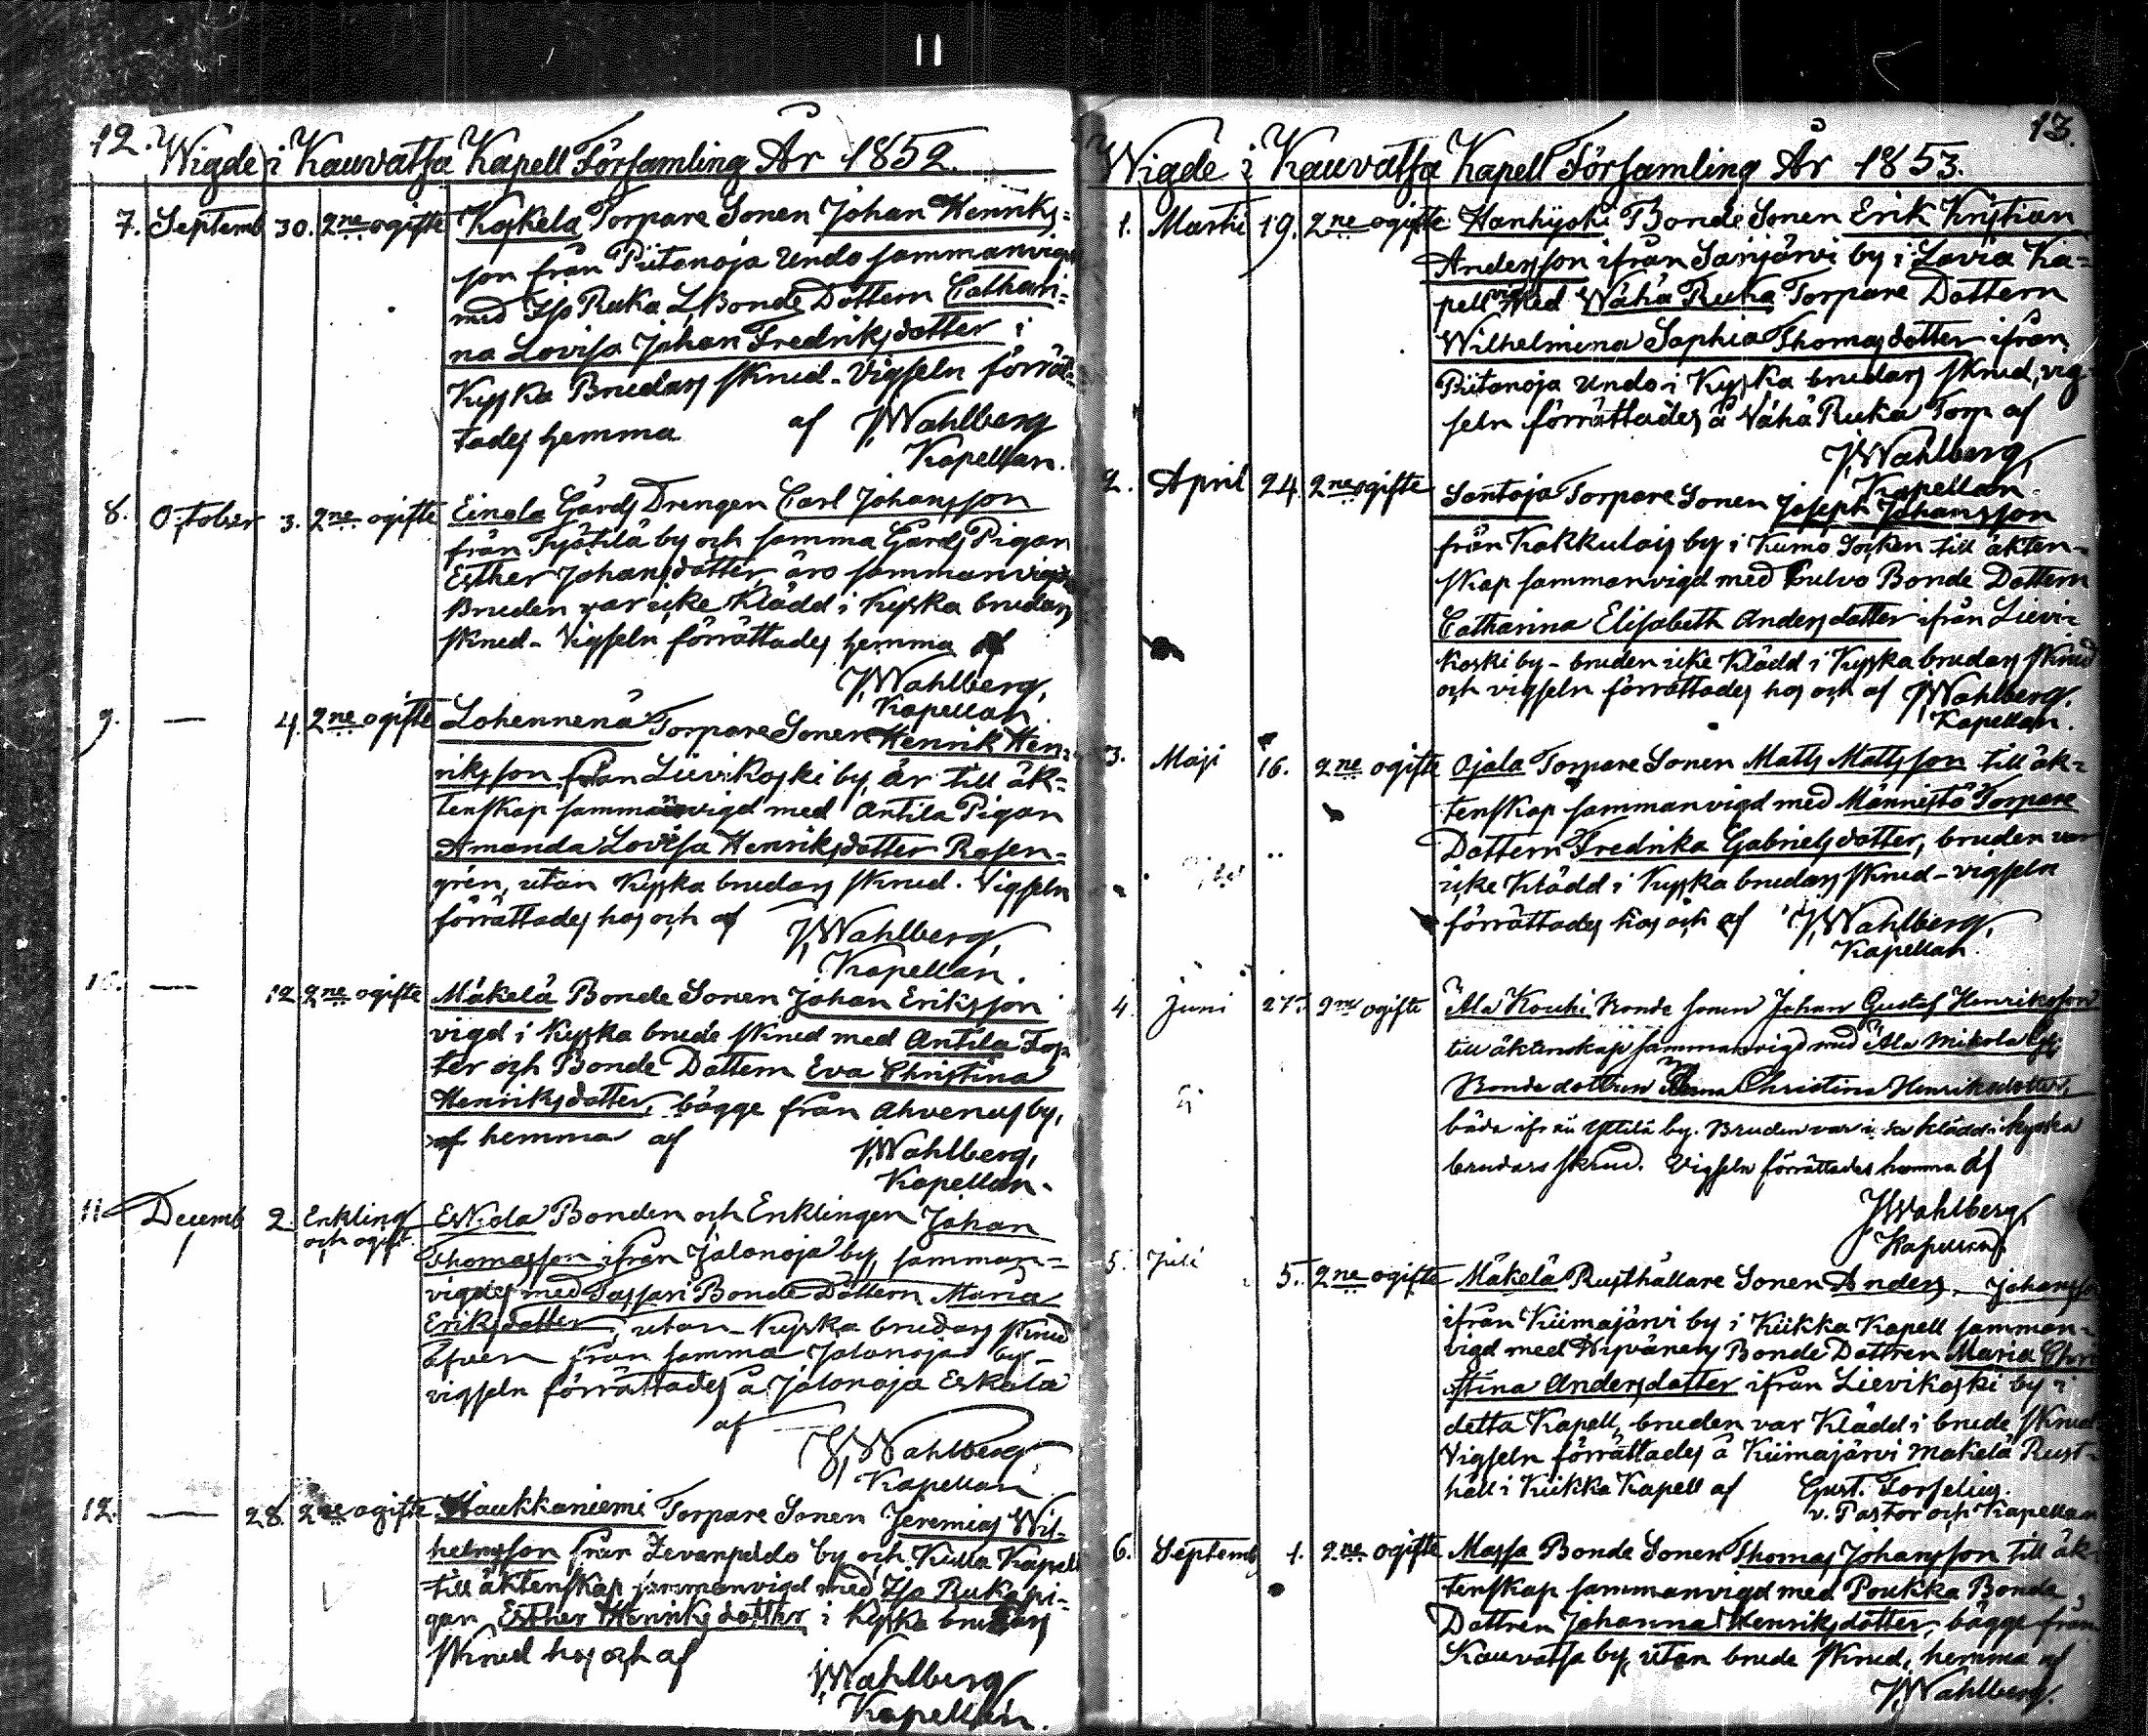 11
12.
Wigde i Kauvatsa Kapell Församling År 1852.
7. Septemb 30. 2ne ogifte Koskela Torpare Sonen Johan Henriks-
son från Piitanoja Undo sammanvigd
med Iso Ruka L, Bonde Dottern Cathari-
na Lovisa Johan Fredriksdotter i
Kyska Brudars skrud - Vigseln förrät-
tades hemma af J, Wahlberg
Kapellan.
8. October 3. 2ne ogifte Einola Gårds Drengen Carl Johansson
från by och samma Gårds Pigan
Esther Johansdotter, äro sammanvigde
Bruden var icke Klädd i Kyska brudars
skrud - Vigseln förrättades hemma af
J, Wahlberg,
Kapellan
9. — 4. 2ne ogifte Lohennenä Torpare Sonen Henrik Hen-
riksson från Liivikoski by, är till äk-
tenskap sammanvigd med Antila Pigan
Amanda Lovisa Henriksdotter Rosen-
grén, utan Kyska brudars skrud. Vigseln
förrättades hos och af J, Wahlberg,
Kapellan.
10. — 12 2ne ogifte Mäkelä Bonde Sonen Johan Eriksson
vigd i Kyska brude skrud med Antila
och Bonde Dottern Eva Christina
Henriksdotter, bägge från Ahvenus by,
hemma af J, Wahlberg,
Kapellan.
11 Decemb 2. Enkling och ogift. Eskola Bonden och Enklingen Johan
Thomasson ifrån Jalonoja by, samman-
vigdes med Sassari Bonde Dottern Maria
Eriksdotter, utan Kyska brudars skrud
äfven från samma Jalonoja by -
vigseln förrättades å Jalonoja Eskola
af
J, Wahlberg
Kapellan
12. — 28. 2ne ogifte Haukkaniemi Torpare Sonen Jeremias Wil-
helmsson från Levanpeldo by och Kulla Kapell
till äktenskap sammanvigd med Iso Ruka pi-
gan Esther Henriksdotter i Kyska brudars
skrud hos och af
J, Wahlberg
Kapellan.
13.
Wigde i Kauvatsa Kapell Församling År 1853.
1. Martii 19. 2ne ogifte Hanhijoki Bonde Sonen Erik Kristian
Andersson ifrån Sarijärvi by i Lavia Ka-
pell vigd med Wähä Ruka Torpare Dottern
Wilhelmina Sophia Thomasdotter ifrån
Piitanoja Undo i Kyska brudars skrud, vig-
seln förrättades å Vähä Ruka Torp af
J, Wahlberg,
Kapellan.
2. April 24. 2ne ogifte Santoja Torpare Sonen Joseph Johansson
från Kakkulais by i Kumo Socken till äkten-
skap sammanvigd med Bonde Dottern
Catharina Elisabeth Andersdotter ifrån Lievi-
koski by - bruden icke Klädd i Kyska brudars skrud
och vigseln förrättades hos och af J, Wahlberg.
Kapellan.
3. Maji 16. 2ne ogifte Ojala Torpare Sonen Matts Mattsson till äk-
tenskap sammanvigd med Männistö Torpare
Dottern Fredrika Gabrielsdotter, bruden var
icke Klädd i Kyska brudars skrud - vigseln
förrättades hos och af J, Wahlberg,
Kapellan
4. Juni 27. 2ne ogifte Ala Kouhi Bonde sonen Johan Gustaf Henriksson
till äktenskap sammanvigd med Ala Mikola
Bonde dottren Anna Christina Henriksdotter,
båda ifrån Yttilä by. Bruden var icke klädd i kyska
brudars skrud. Vigseln förrättades hemma af
J, Wahlberg,
Kapellan
5. Juli 5. 2ne ogifte Mäkelä Rusthållare Sonen Anders Johansson
ifrån Kiimajärvi by i Kiikka Kapell samman-
vigd med Hyvänens Bonde Dottren Maria Chri
stina Andersdotter ifrån Lievikoski by i
detta Kapell, bruden var Klädd i brude skrud
Vigseln förrättades å Kiimajärvi Mäkelä Rust-
håll i Kiikka Kapell af Gust. Torselius.
v. Pastor och Kapellan
6. Septemb 1. 2ne ogifte Massa Bonde Sonen Thomas Johansson till äk-
tenskap sammanvigd med Poukka Bonde
Dottren Johanna Henriksdotter, bägge från
Kauvatsa by, utan brude skrud, hemma af
J, Wahlberg.